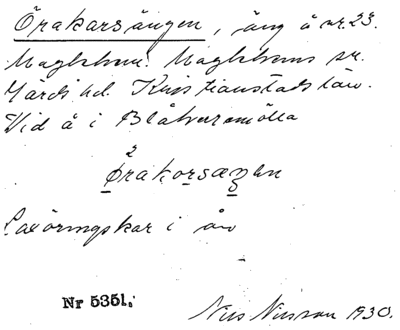 Örakarsängen, äng å nr. 23.
Maglehem. Maglehems sn.
Gärds hd. Kristianstads län.
Vid å i Blåherremölla
2
Örakorsæŋen
Laxöringskar i ån
Nr 5351.
Nils Nilsson 1930.